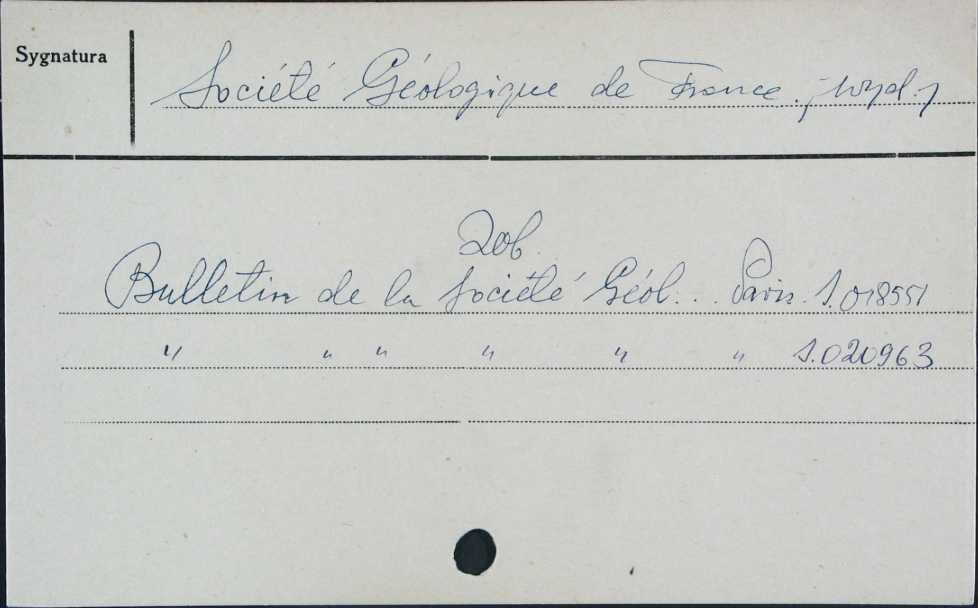 Sygnatura
Société Géologique de France. /wyd./
Zob.
Bulletin de la Société Géol... Paris. S.018551
" " " " " " S.020963